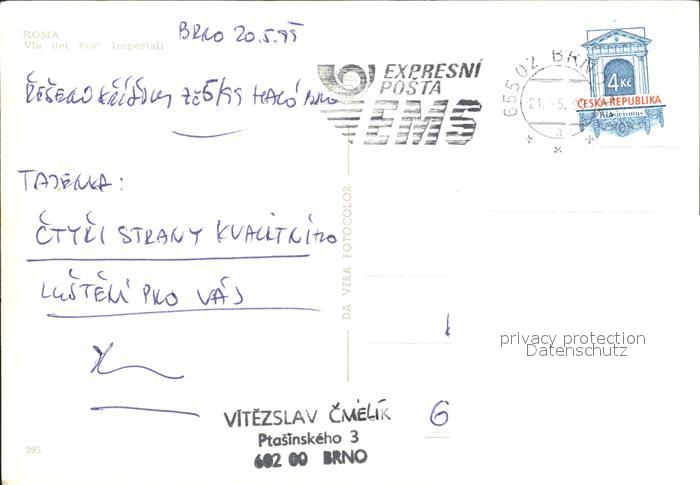 ROMA
Via dei Fori Imperiali
BRNO 20.5.99
KŘÍŽOVKY 5/99 HALÓ BRNO
TAJENKA:
ČTYŘI STRANY KVALITNÍHO
LUŠTĚNÍ PRO VÁS
295
DA VERA FOTOCOLOR
EXPRESNÍ
POŠTA
EMS
655 02 BRNO
21.-5.
a
4 Kč
ČESKÁ REPUBLIKA
Klasicismus
privacy protection
Datenschutz
VÍTĚZSLAV ČMELÍK
Ptašínského 3
602 00 BRNO
6